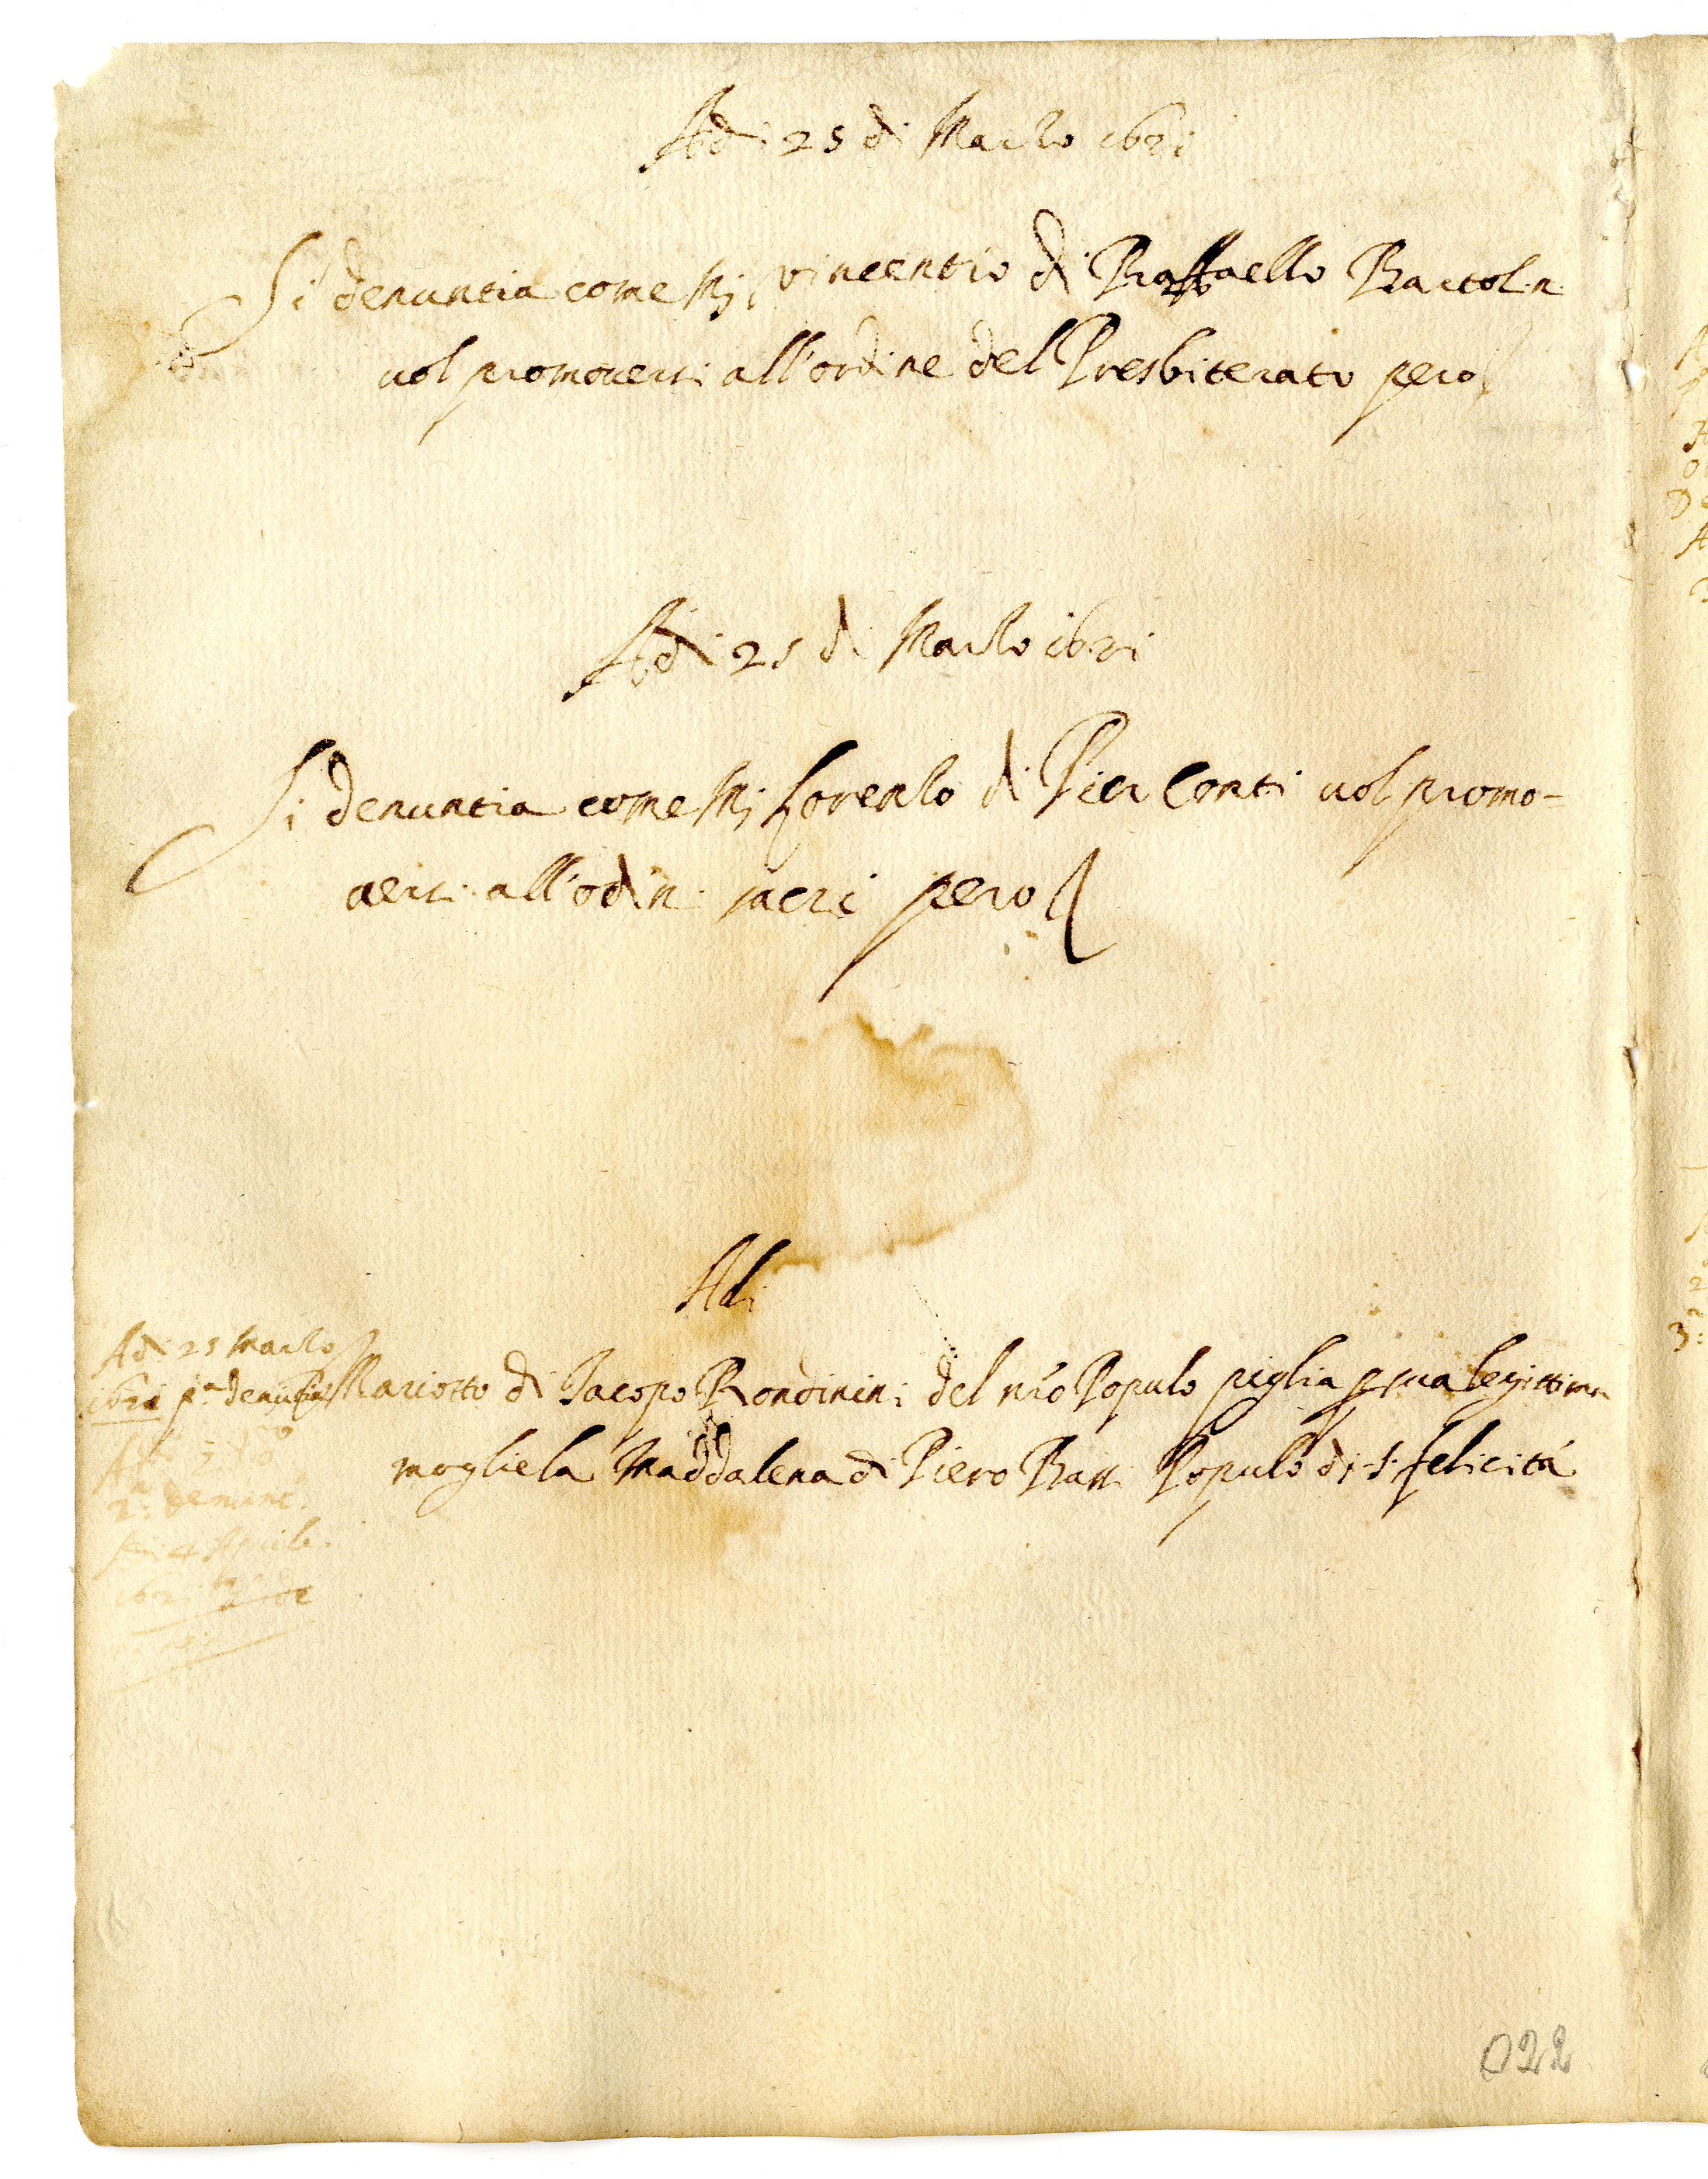 Adi 25 di Marzo 1621
Si denuntia come Mr Vincentio di Raffaello Bartolin
vol promoversi all'ordine del Presbiterato pero
Adi 25 di Marzo 1621
Si denuntia come Mr Lorenzo di Pier Conti vol promo-
versi all'odini sacri pero
Adi
Adi 25 Marzo
1621 pa denuntia
2a: denunt.
Adi 4 Aprile
Mariotto di Jacopo Rondinini del nro Popolo piglia p sua legittima
moglie la Maddalena di Piero Popolo di S. felicità
022